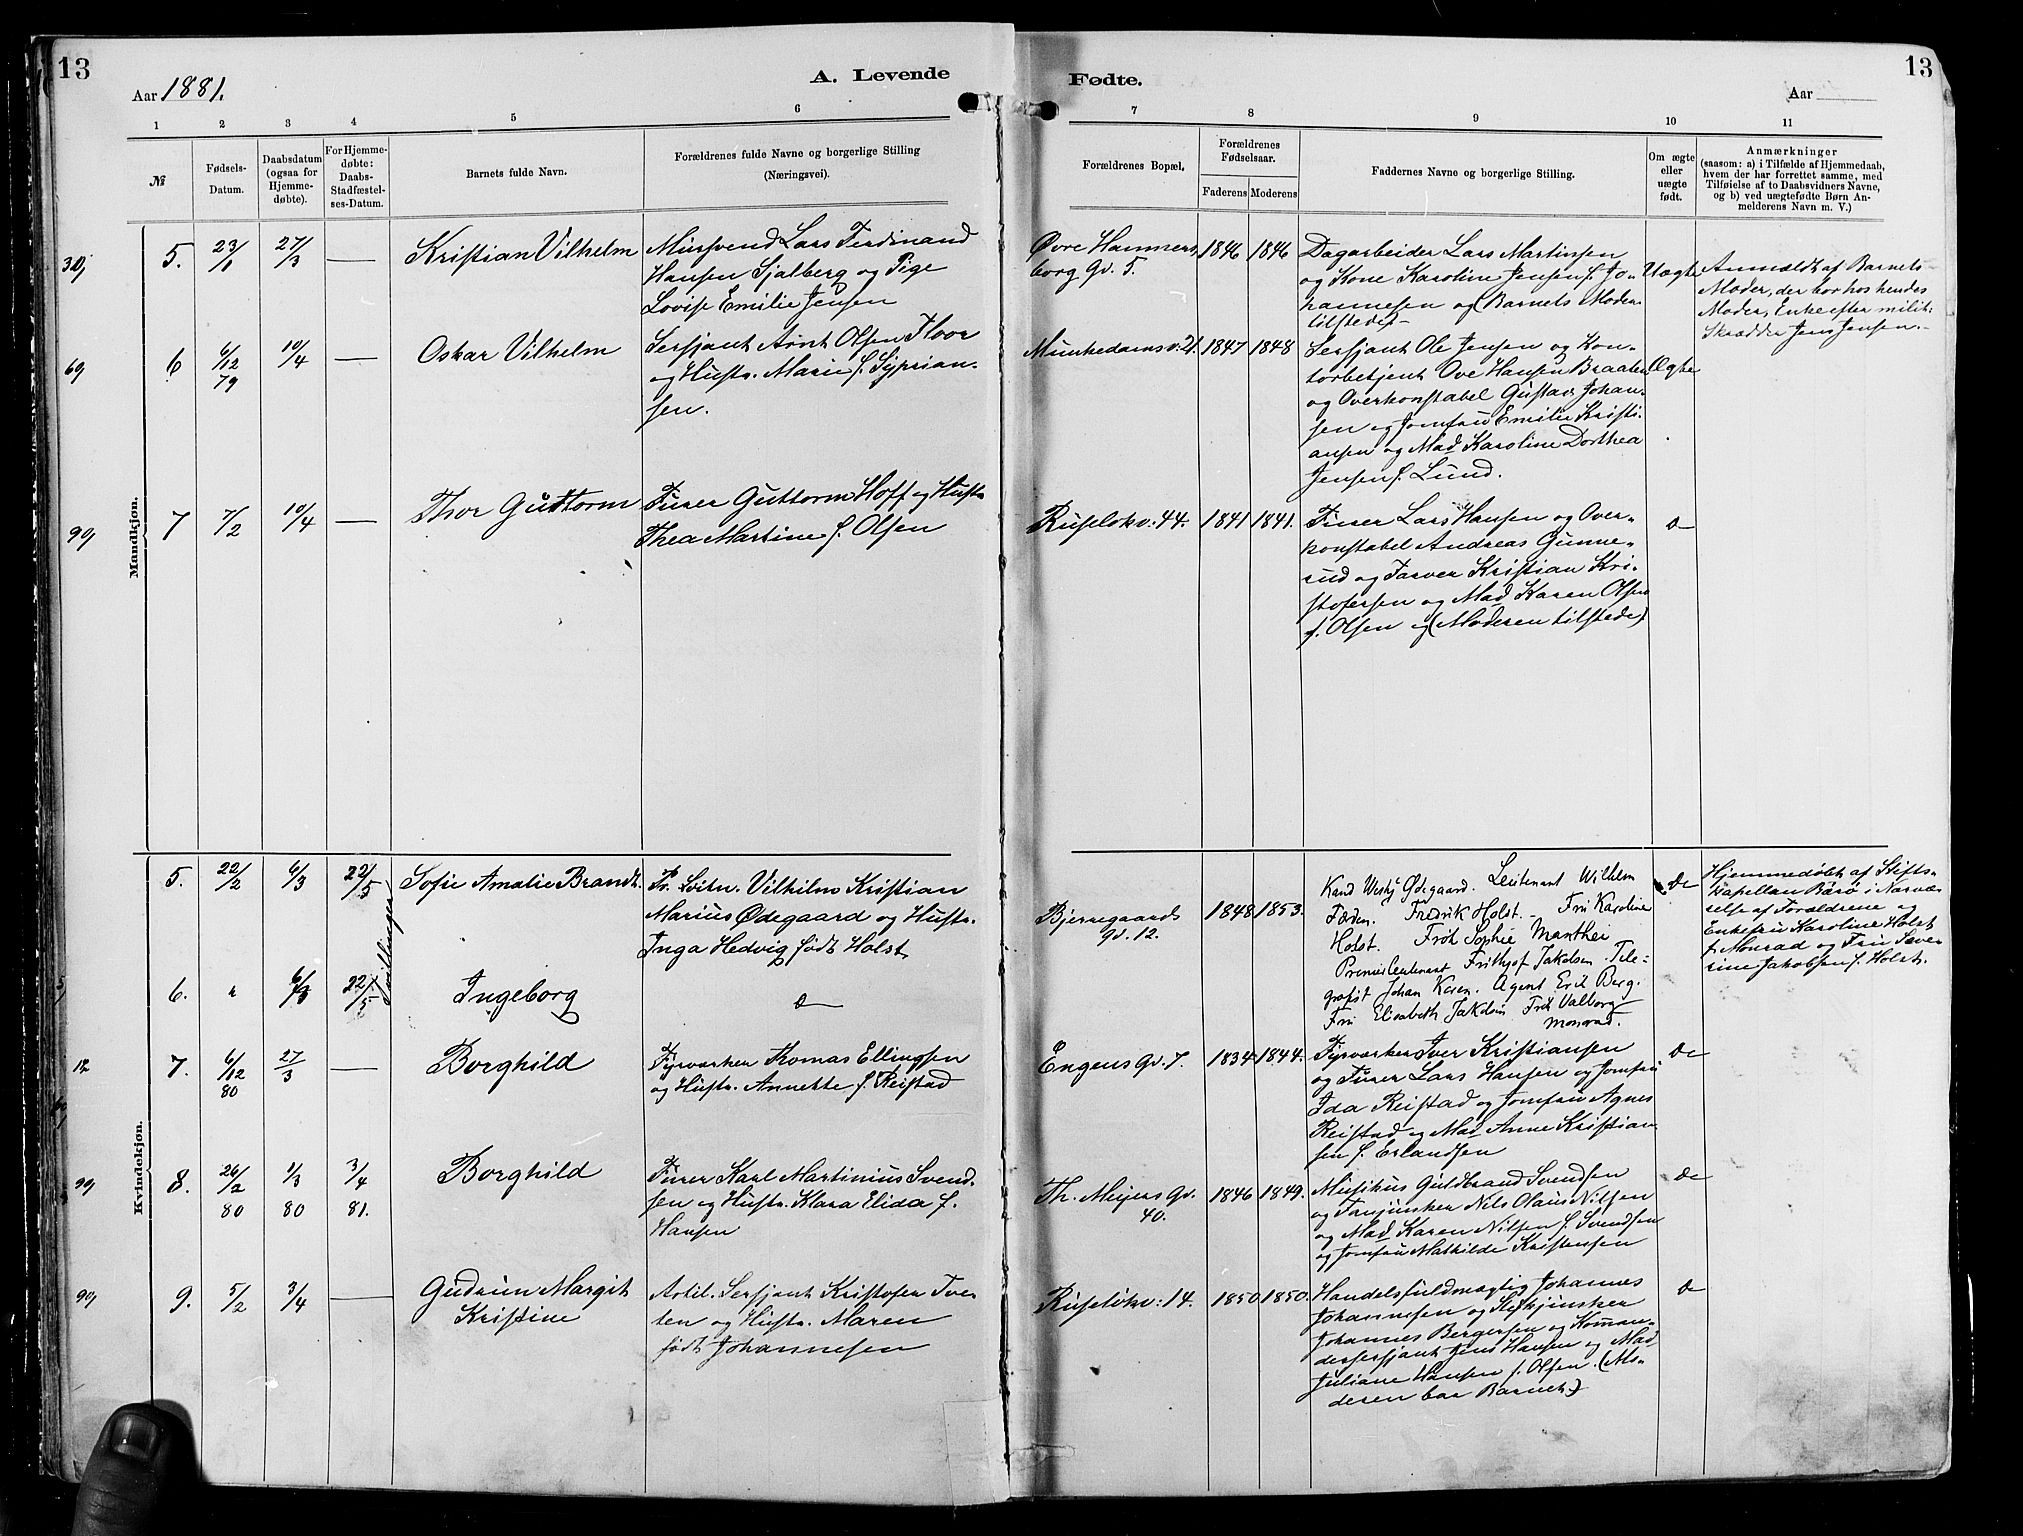 13
Aar 1881.
A. Levende
Fødte.
Aar
13
1 2 3 4 5 6 7 8 9 10 11
№
Fødsels-
Datum.
Daabsdatum
(ogsaa for
Hjemme-
døbte).
For Hjemme-
døbte:
Daabs-
Stadfæstel-
ses-Datum.
Barnets fulde Navn.
Forældrenes fulde Navne og borgerlige Stilling
(Næringsvei).
Forældrenes Bopæl,
Forældrenes
Fødselsaar.
Faderens Moderens
Faddernes Navne og borgerlige Stilling.
Om ægte
eller
uægte
født.
Anmærkninger
(saasom: a) i Tilfælde af Hjemmedaab,
hvem der har forrettet samme, med
Tilføielse af to Daabsvidners Navne,
og b) ved uægtefødte Børn An-
melderens Navn m. V.)
Mandkjøn.
5. 23/1 27/3 —
Kristian Vilhelm
Mursvend Lars Ferdinand
Hansen Sjalberg og Pige
Lovise Emilie Jensen
Øvre Hammers
borg Gv. 5.
1846 1846
Dagarbeider Lars Martinsen
og Kone Karoline Jensen f. Jo-
hannesen og (Barnets Moder
tilstede)
Uægte
Anmældt af Barnets
Moder, der bor hos hendes
Moder, Enke efter milit:
Skrædder Jens Jensen.
6 6/12 79 10/4 —
Oskar Vilhelm
Sersjant Arnt Olsen Floor
og Hustr. Marie f. Syprian-
sen.
Munkedamsv: 21.
1847 1848
Sersjant Ole Jensen og Kon-
torbetjent Ove Hansen Braaten
og Overkonstabel Gustav Johan-
sen og Jomfru Emilie Kristi-
ansen og Mad Karoline Dorthea
Jensen f. Lund.
Ægte
7 7/2 10/4 —
Thor Guttorm
Furer Guttorm Hoff og Hustr
Thea Martine f. Olsen
Ruseløkv: 44.
1841 1841.
Furer Lars Hansen og Over-
konstabel Andreas Gunne-
rud og Farver Kristian Kri-
stofersen og Mad Karen Olsen
f. Olsen og (Moderen tilstede)
Kvindekjøn.
5. 22/2 6/3 22/5
Tvillinger
Sofie Amalie Brandt.
Pr. Løitn. Vilhelm Kristian
Marius Ødegaard og Hustr.
Inga Hedvig født Holst
Bjerregaards
gv. 12.
1848 1853.
Leutenant Wilhelm
Fredrik Holst. Fru Karoline
Holst. Frøk Sophie Manthei
Premierleutenant Frithjof Jakobsen. Tele-
grafist Johan Keren. Agent Erik Berg.
Fru Elisabeth Jakobsen Frøk Valborg
Monrad.
do
Hjemmedøbt af Stifts-
kapellan Barø i Nærvæ-
relse af Forældrene og
Enkefru Karoline Holst
f. Monrad og Fru Seve-
rine Jakobsen f. Holst.
6. 6/3 22/5
Ingeborg
7. 6/12 80 27/3 —
Borghild
Fyrværker Thomas Ellingsen
og Hustr. Annette f. Reistad
Engens Gv. 7.
1834 1844.
Fyrværker Iver Kristiansen
og Furer Lars Hansen og Jomfru
Ida Reistad og Jomfru Agnes
Reistad og Mad Anne Kristian-
sen f. Erlandsen
do
8. 26/2 80 1/3 80 3/4 81.
Borghild
Furer Karl Martinius Svend-
sen og Hustr. Klara Elida f.
Hansen
Th. Meyers Gv.
40.
1846 1849.
Musikus Guldbrand Svendsen
og Nils Olaus Nilsen
og Mad Karen Nilsen f. Svendsen
og Jomfru Mathilde Kristensen
do
9. 5/2 3/4 —
Gudrun Margit
Kristine
Artil. Sersjant Kristofer Tve-
ten og Hustr. Maren
født Johannesen
Ruseløkv: 14.
1850 1850.
Handelsfuldmægtig Johannes
Johannesen og
Johannes Bergersen og Koman-
dersersjant Jens Hansen og Mad
Juliane Hansen f. Olsen. (Mo-
deren bar Barnet)
do